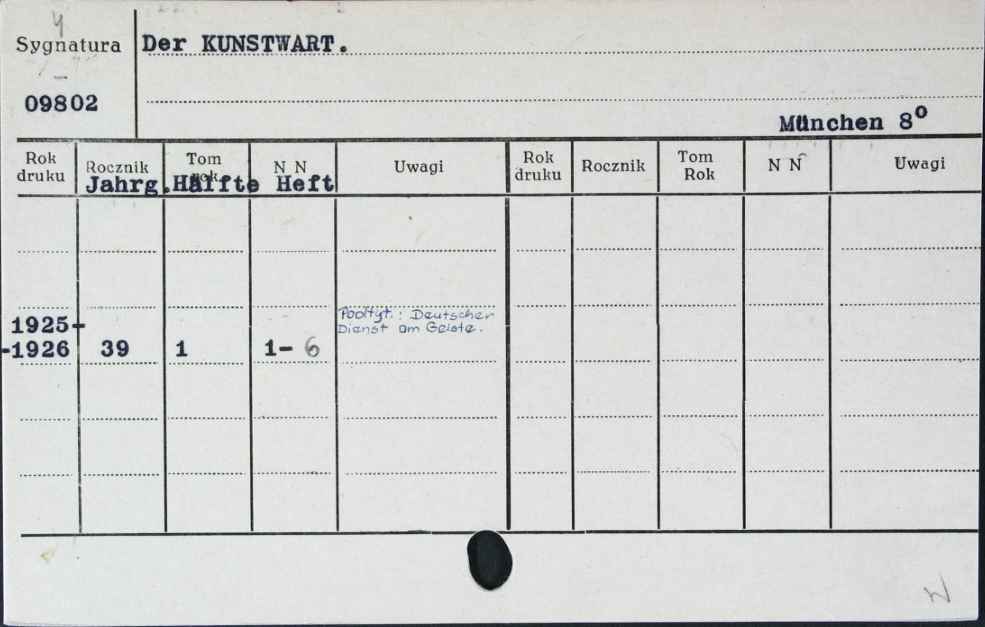 Sygnatura
Der KUNSTWART.
09802
München 8⁰
Rok druku Rocznik Tom Rok N N Uwagi Rok druku Rocznik Tom Rok N N Uwagi
Jahrg. Hälfte Heft
Podtyt.: Deutscher
1925-
Dienst am Geiste.
-1926 39 1 1- 6